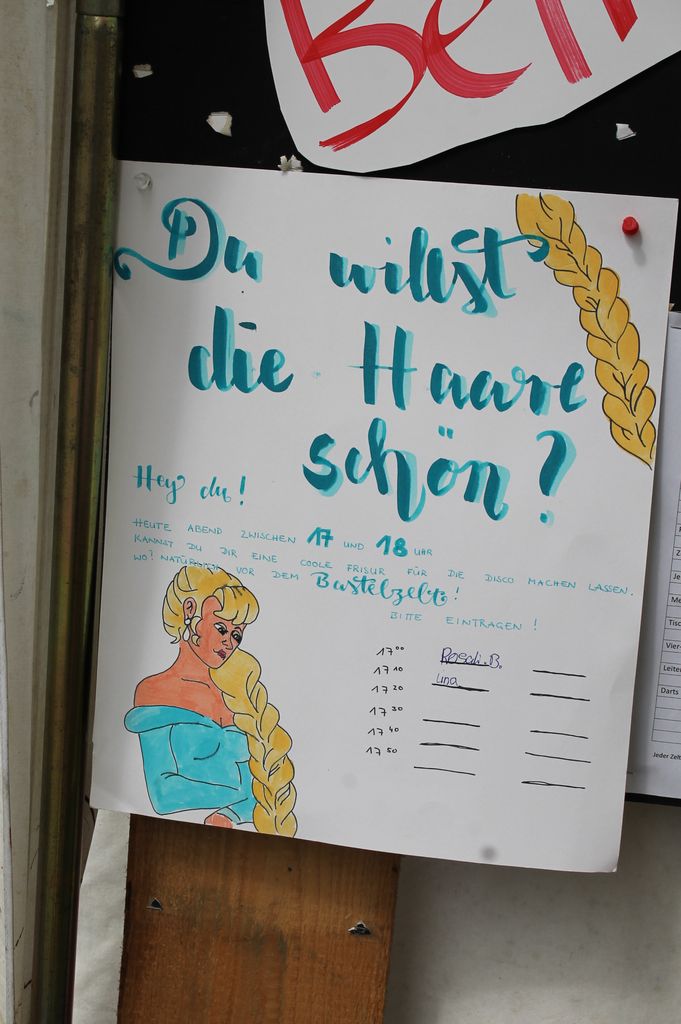 Du willst
die Haare
schön?
Hey du!
HEUTE ABEND ZWISCHEN 17 UND 18 UHR
KANNST DU DIR EINE COOLE FRISUR FÜR DIE DISCO MACHEN LASSEN.
WO? NATÜRLICH VOR DEM Bastelzelt!
BITTE EINTRAGEN!
17⁰⁰ Rosali.B.
17¹⁰ Lina
17²⁰
17³⁰
17⁴⁰
17⁵⁰
Tisc
Vier-
Leiter
Darts
Jeder Zelt